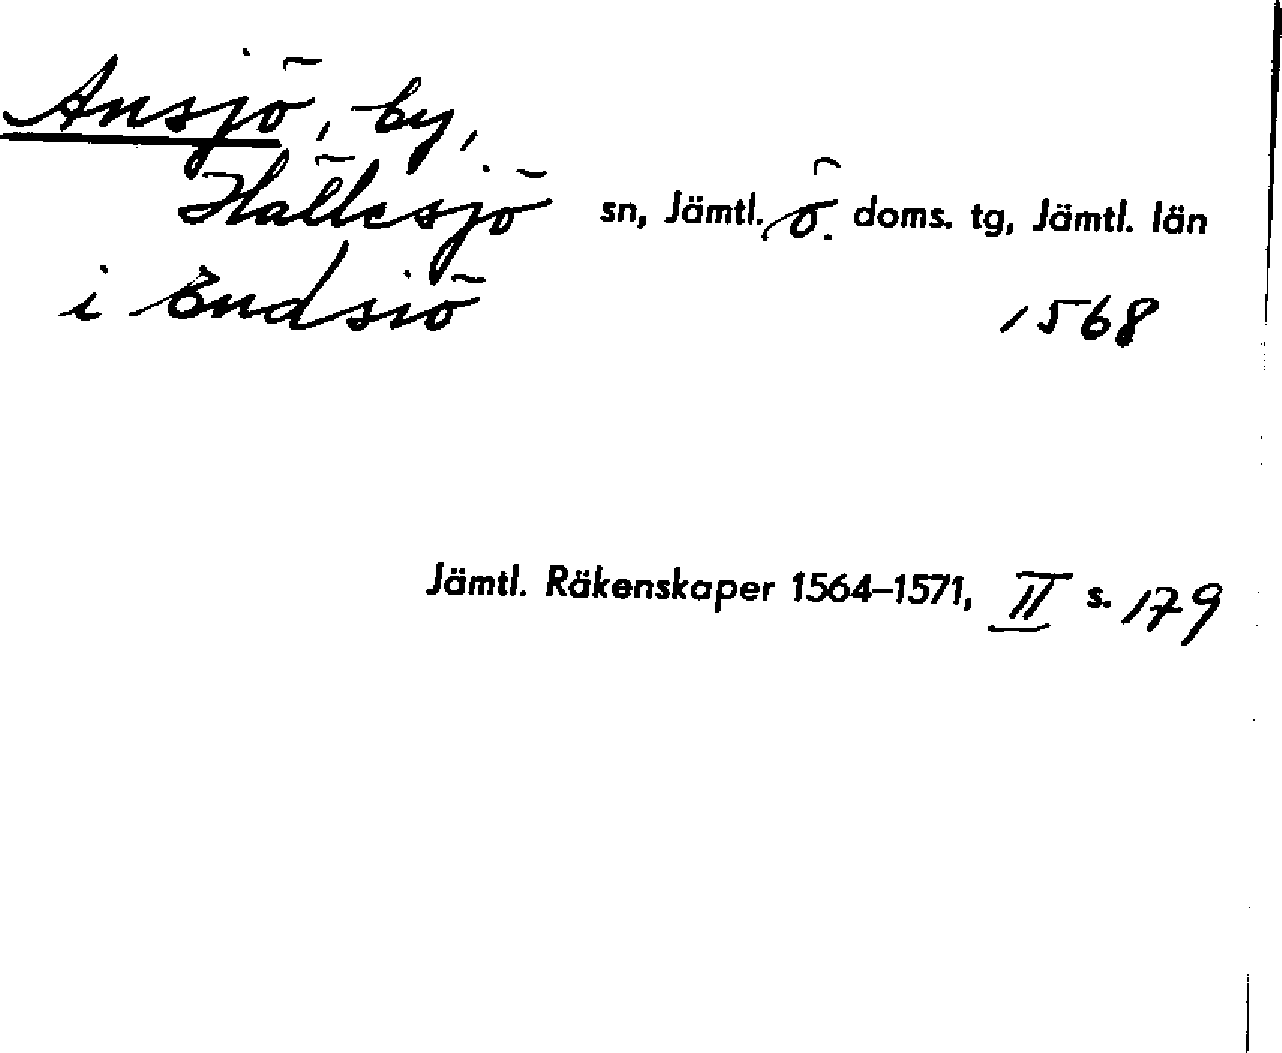 Ansjö, by,
Hällesjö sn, Jämtl. ö. doms. tg, Jämtl. län
i Endsiö 1568
Jämtl. Räkenskaper 1564–1571, II s. 179